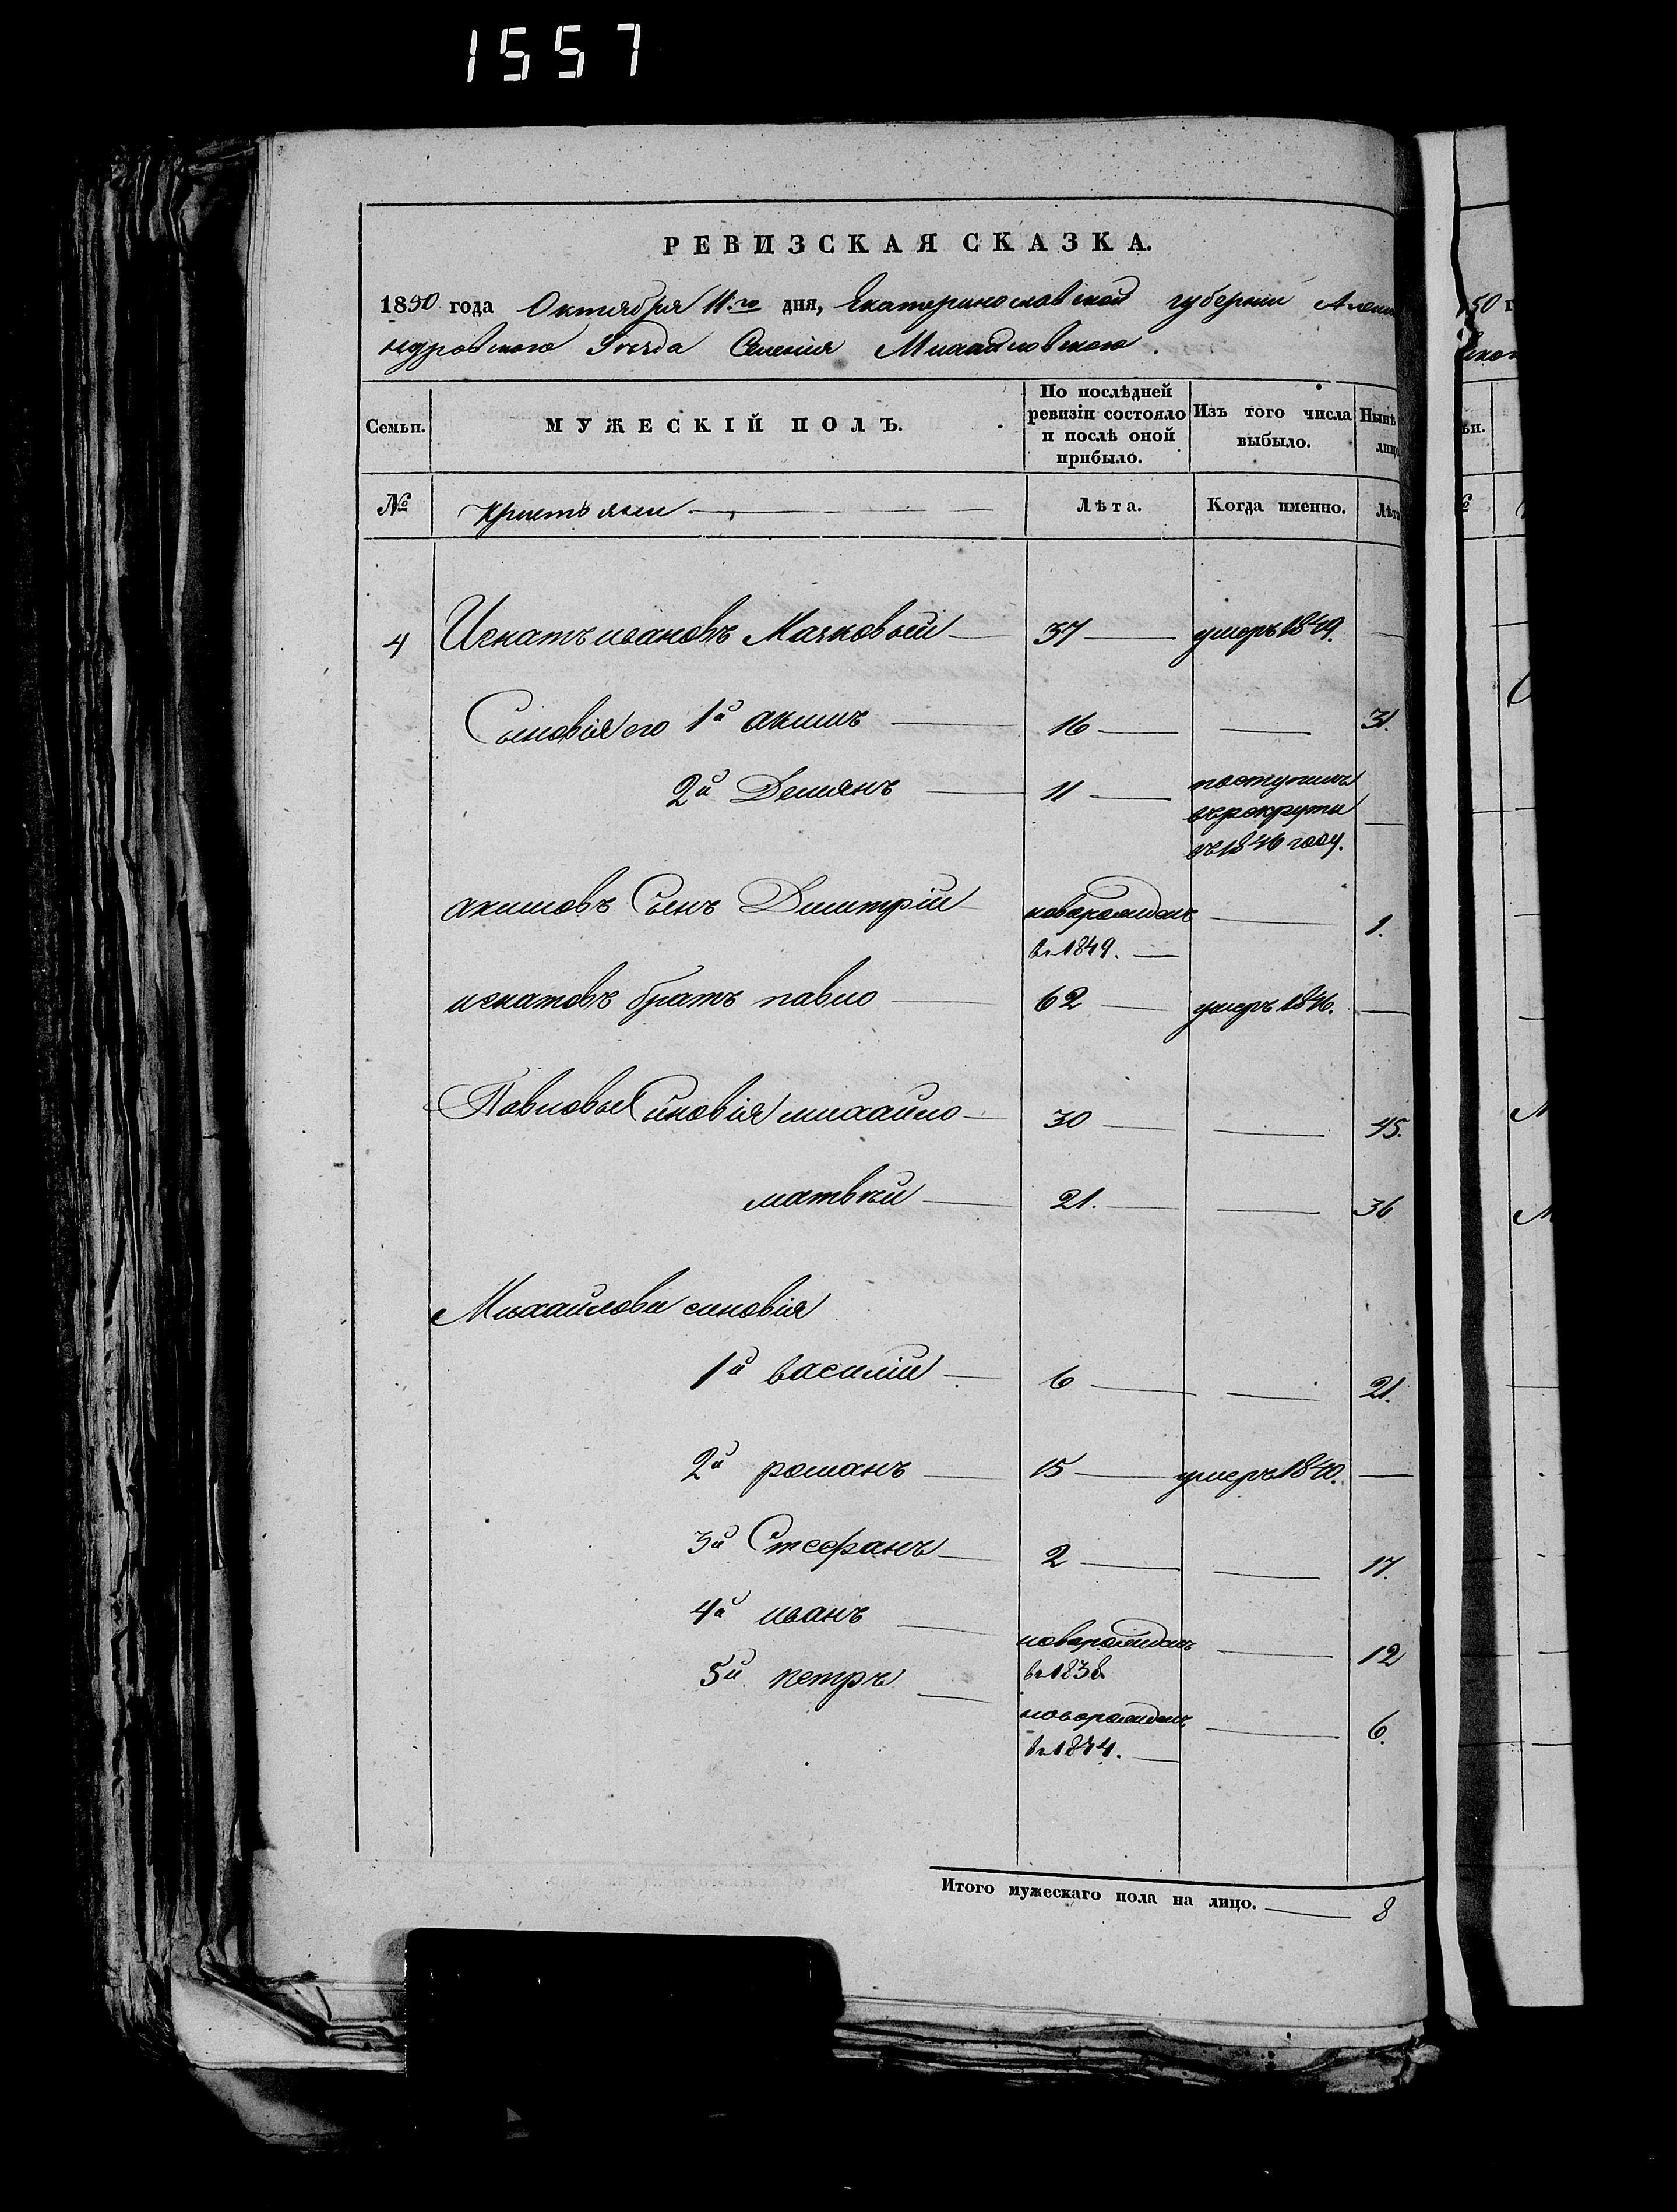 1557
РЕВИЗСКАЯ СКАЗКА.
1850 года Октября 11.го дня, Екатеринославской губерніи Алекса
ндровского Уѣзда Селенія Михайловского.
Семьи.
МУЖЕСКІЙ ПОЛЪ.
По послѣдней ревизіи состояло и послѣ оной прибыло.
Изъ того числа выбыло.
Нынѣ
лицо
№
Лѣта.
Когда именно.
Лѣта
4 Игнатъ ивановъ Маяковый 37 умеръ 1849.
Сыновія его 1й акимъ 16 31.
2й Демянъ 11 поступилъ
въ рекруты
въ 1846 году.
акимовъ Сынъ Дмитрій новорожденъ 1.
въ 1849.
игнатовъ братъ павло 62 умеръ 1846.
Павловы Синовія михайло 30 45.
матвѣй 21. 36
Михайлови синовія
1й василій 6 21.
2й романъ 15 умеръ 1840.
3й Стефанъ 2 17.
4й иванъ новорожденъ 12
въ 1838
5й петръ новорожденъ 6.
въ 1844.
Итого мужескаго пола на лицо. 8